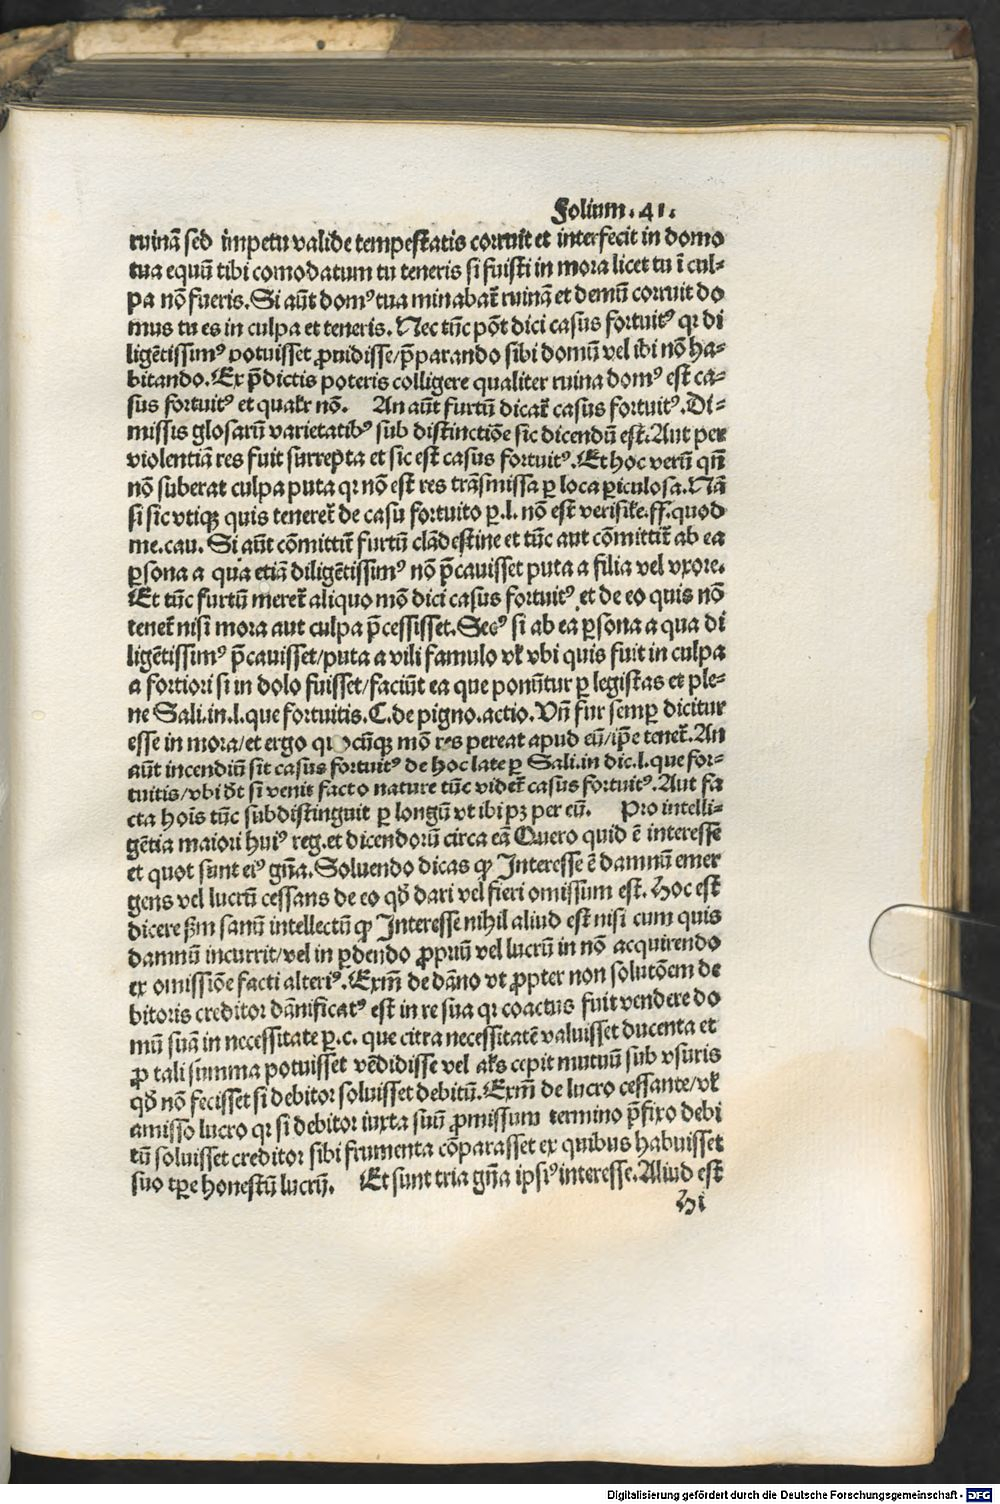 Folium. 41.
ruinā sed impetu valide tempestatis corruit et interfecit in domo
tua equū tibi comodatum tu teneris si fuisti in mora licet tu ī cul⸗
pa nō fueris. Si aūt domꝰ tua minabat̄ ruinā et demū corruit do
mus tu es in culpa et teneris. Nec tūc pōt dici casus fortuitꝰ qꝛ di
ligētissimꝰ potuisset ꝓuidisse/p̄parando sibi domū vel ibi nō ha⸗
bitando. Ex p̄dictis poteris colligere qualiter ruina domꝰ est ca⸗
sus fortuitꝰ et qualr̄ nō. An aūt furtū dicat̄ casus fortuitꝰ. Di⸗
missis glosarū varietatibꝰ sub distinctiōe sic dicendū est. Aut per
violentiā res fuit surrepta et sic est casus fortuitꝰ. Et hoc verū qn̄
nō suberat culpa puta qꝛ nō est res trāsmissa ꝑ loca ꝑiculosa. Nā
si sic vtiqꝫ quis teneret̄ de casu fortuito ꝑ.l. nō est verisile. ff. quod
me. cau. Si aūt cōmittit̄ furtū clādestine et tūc aut cōmittit̄ ab ea
ꝑsona a qua etiā diligētissimꝰ nō p̄cauisset puta a filia vel vxore.
Et tūc furtū meret̄ aliquo mō dici casus fortuitꝰ et de eo quis nō
tenet̄ nisi mora aut culpa p̄cessisset. Secꝰ si ab ea ꝑsona a qua di
ligētissimꝰ p̄cauisset/puta a vili famulo vl̄ vbi quis fuit in culpa
a fortiori si in dolo fuisset/faciūt ea que ponūtur ꝑ legistas et ple⸗
ne Sali. in. l. que fortuitis. C. de pigno. actio. Vn̄ fur semꝑ dicitur
esse in mora/et ergo quocūqꝫ mō res pereat apud eū/ip̄e tenet̄. An
aūt incendiū sit casus fortuitꝰ de hoc late ꝑ Sali. in dic. l. que for⸗
tuitis/vbi dt̄ si venit facto nature tūc videt̄ casus fortuitꝰ. Aut fa
cta hois tūc subdistinguit ꝑ longū vt ibi pꝫ per eū. Pro intelli⸗
gētia maiori huiꝰ reg. et dicendorū circa eā Quero quid ē interesse
et quot sunt eiꝰ gn̄a. Soluendo dicas ꝙ Interesse ē damnū emer
gens vel lucrū cessans de eo qd̄ dari vel fieri omissum est. Hoc est
dicere ẜm sanū intellectū ꝙ Interesse nihil aliud est nisi cum quis
damnū incurrit/vel in ꝑdendo ꝓpriū vel lucrū in nō acquirendo
ex omissiōe facti alteriꝰ. Exm̄ de dāno vt ꝓpter non solutōem de
bitoris creditor dānificatꝰ est in re sua qꝛ coactus fuit vendere do
mū suā in necessitate ꝑ.c. que citra necessitatē valuisset ducenta et
ꝓ tali summa potuisset vēdidisse vel al̄s cepit mutuū sub vsuris
qd̄ nō fecisset si debitor soluisset debitū. Exm̄ de lucro cessante/vl̄
amisso lucro qꝛ si debitor iuxta suū ꝓmissum termino p̄fixo debi
tū soluisset creditor sibi frumenta cōparasset ex quibus habuisset
suo tꝑe honestū lucrū. Et sunt tria gn̄a ipsiꝰ interesse. Aliud est
Hi
Digitalisierung gefördert durch die Deutsche Forschungsgemeinschaft - DFG